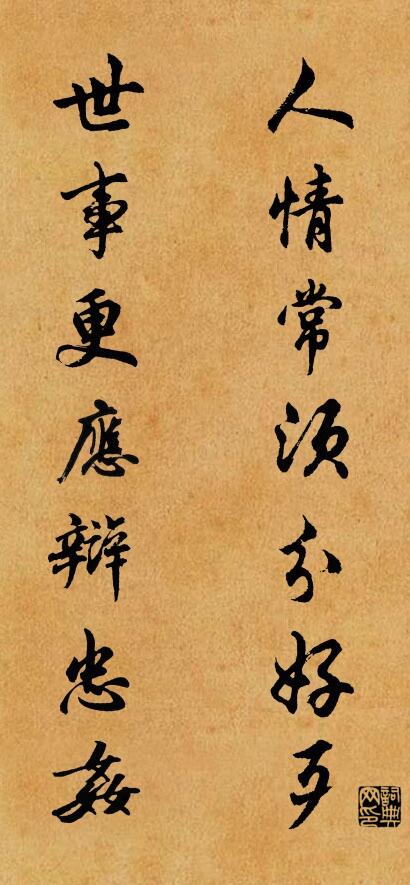 人情常須分好歹
世事更應辯忠姦
詞典网印